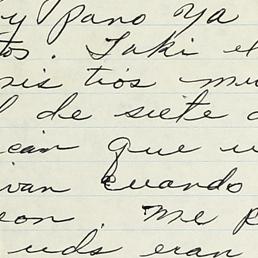 y pano ya
tos. Taki el
mis tios mu
l de siete a
ican que u
ivan cuando
son. Me p
uds eran